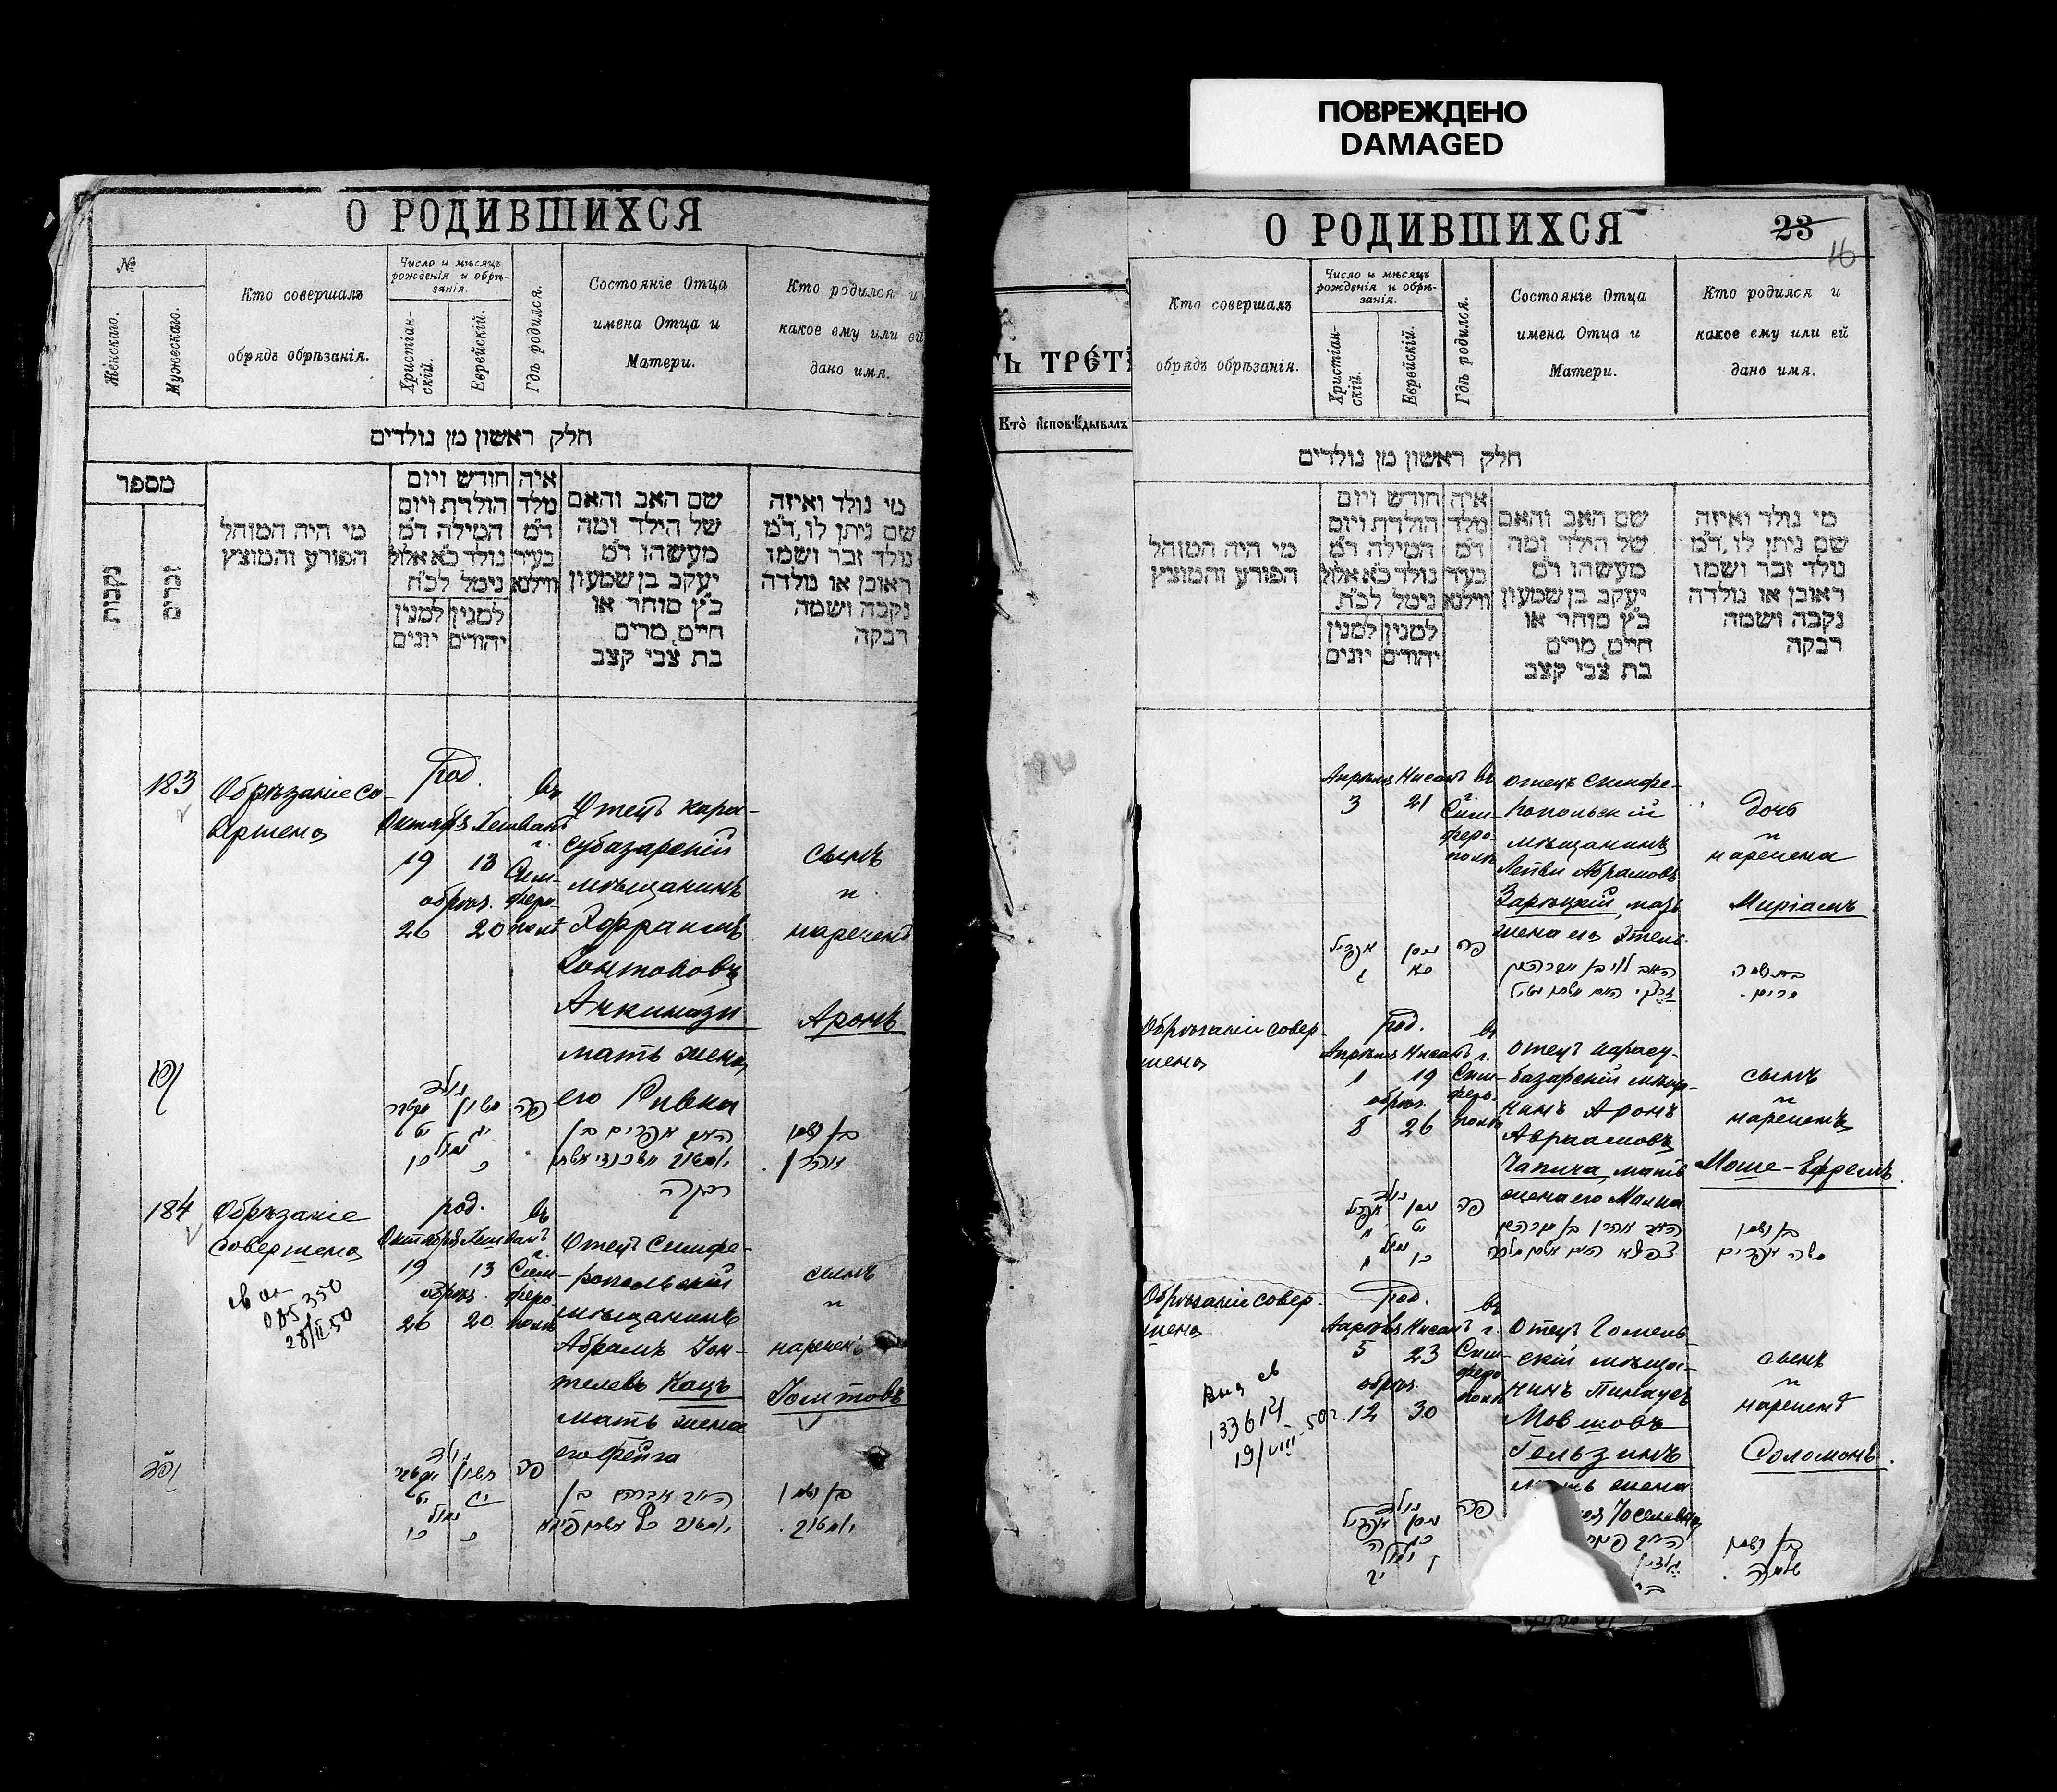 ПОВРЕЖДЕНО
DAMAGED
О РОДИВШИХСЯ
№
Женскаго.
Мужескаго.
Кто совершалъ
обрядъ обрѣзанія.
Число и мѣсяцъ
рожденія и обрѣ-
занія.
Христіан-
скій.
Еврейскій.
Гдѣ родился.
Состояніе Отца
имена Отца и
Матери.
Кто родился и
какое ему или ей
дано имя.
חלק ראשון מן נולדים
מספר
נקבות
זכרים
מי היה המוהל
הפורע והמוצץ
חודש ויום
הולדת ויום
המילה ד״מ
נולד כ״א אלול
נימל לכ״ח
למנין למנין
יהודים יונים
איה
מלד
ד״מ
בעיר
ווילנא
שם האב והאם
של הילד ומה
מעשהו ד״מ
יעקב בן שמעון
כ״ץ סוחר או
חיים, מרים
בת צבי קצב
מי נולד ואיזה
שם ניתן לו, ד״מ
נולד זכר ושמו
ראובן או נולדה
נקבה ושמה
רבקה
183
Обрѣзаніе со-
вершено
род.
въ
19 13
г.
Сим-
феро
обрѣз.
26 20
Отецъ кара-
субазарскій
мѣщанинъ
Эфраимъ
Ашкинази
мать жена
его Ривка
сынъ
и
нареченъ
Аронъ
פה
בן ושמו
אהרן
האב אפרים בן
רבקה
184
Обрѣзаніе
совершено
28/II 50
род.
въ
19 13
г.
Сим-
феро
обрѣз.
26 20
Отецъ Симфе-
ропольскій
мѣщанинъ
Абрамъ Іом-
телевъ Кацъ
мать жена
его Фейга
сынъ
и
нареченъ
Іомтовъ
פה
האב אברהם בן
בן ושמו
יומטוב
О РОДИВШИХСЯ
23
16
ТЬ ТРЕТ
Кто̀ и҆сповѣ́дывалъ
Кто совершалъ
обрядъ обрѣзанія.
Число и мѣсяцъ
рожденія и обрѣ-
занія.
Христіан-
скій.
Еврейскій.
Гдѣ родился.
Состояніе Отца
имена Отца и
Матери.
Кто родился и
какое ему или ей
дано имя.
חלק ראשון מן נולדים
מי היה המוהל
הפורע והמוצץ
חודש ויום
הולדת ויום
המילה ד״מ
נולד כ״א אלול
נימל לכ״ח
למנין למנין
יהודים יונים
איה
מלד
ד״מ
בעיר
ווילנא
שם האב והאם
של הילד ומה
מעשהו ד״מ
יעקב בן שמעון
כ״ץ סוחר או
חיים, מרים
בת צבי קצב
מי נולד ואיזה
שם ניתן לו, ד״מ
נולד זכר ושמו
ראובן או נולדה
נקבה ושמה
רבקה
Апрѣля Нисанъ въ
3 21
г.
Сим-
феро-
поль
отецъ Симфе-
ропольскій
мѣщанинъ
Лейви Абрамовъ
Зарѣцкій, мать
жена его Этель
дочь
и
наречена
Миріамъ
ניסן אפריל
פה
מרים
Обрѣзаніе совер-
шено
род.
въ
Апрѣля Нисанъ г.
1 19
Сим-
феро-
поль
обрѣз.
8 26
отецъ карасу-
базарскій мѣща-
нинъ Аронъ
Авраамовъ
Чапича, мать
жена его Малка
сынъ
и
нареченъ
Моше-Ефремъ
ניסן אפריל
פה
האב אהרן בן אברהם
בן ושמו
משה אפרים
Обрѣзаніе совер-
шено
133614
19/VIII 50г.
род.
въ
Апрѣля Нисанъ г.
5 23
Сим-
феро
поль
обрѣз.
12 30
Отецъ Гомель-
скій мѣща-
нинъ Пинхусъ
Мовшовъ
Гельзинъ
мать жена
Іоселевна
сынъ
и
нареченъ
Соломонъ
ניסן אפריל
פה
בן ושמו
שלמה